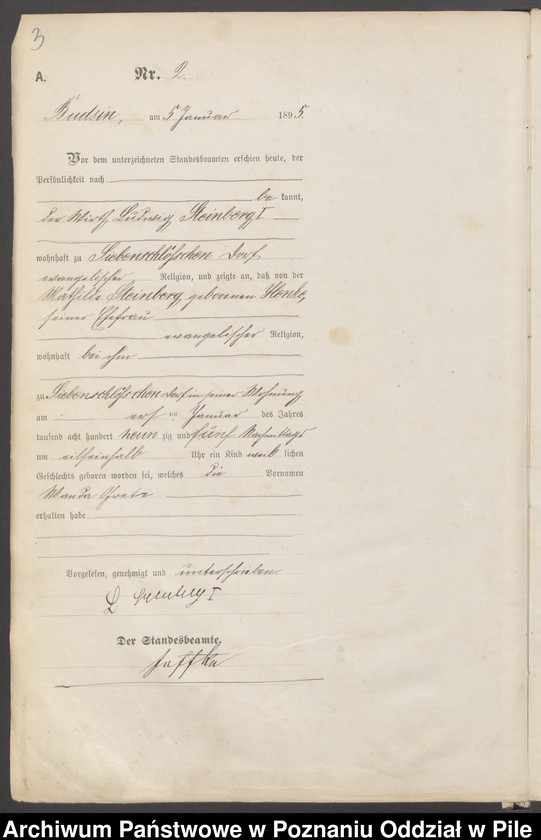 3
A. Nr. 2.
Budsin, am 5 Januar 1895.
Vor dem unterzeichneten Standesbeamten erschien heute, der
Persönlichkeit nach
be kannt,
der Wirth Ludwig Steinberg I
wohnhaft zu Siebenschlößchen Dorf
evangelischer Religion, und zeigte an, daß von der
Mathilde Steinberg, geborenen Henke,
seiner Ehefrau
evangelischer Religion,
wohnhaft bei ihm
zu Siebenschlößchen Dorf in seiner Wohnung
am Januar des Jahres
tausend acht hundert neun zig und fünf Nachmittags
um Uhr ein Kind weib lichen
Geschlechts geboren worden sei, welches die Vornamen
Wanda
erhalten habe.
Vorgelesen, genehmigt und unterschrieben.
L Steinberg I
Der Standesbeamte.
Jaffke
Archiwum Państwowe w Poznaniu Oddział w Pile